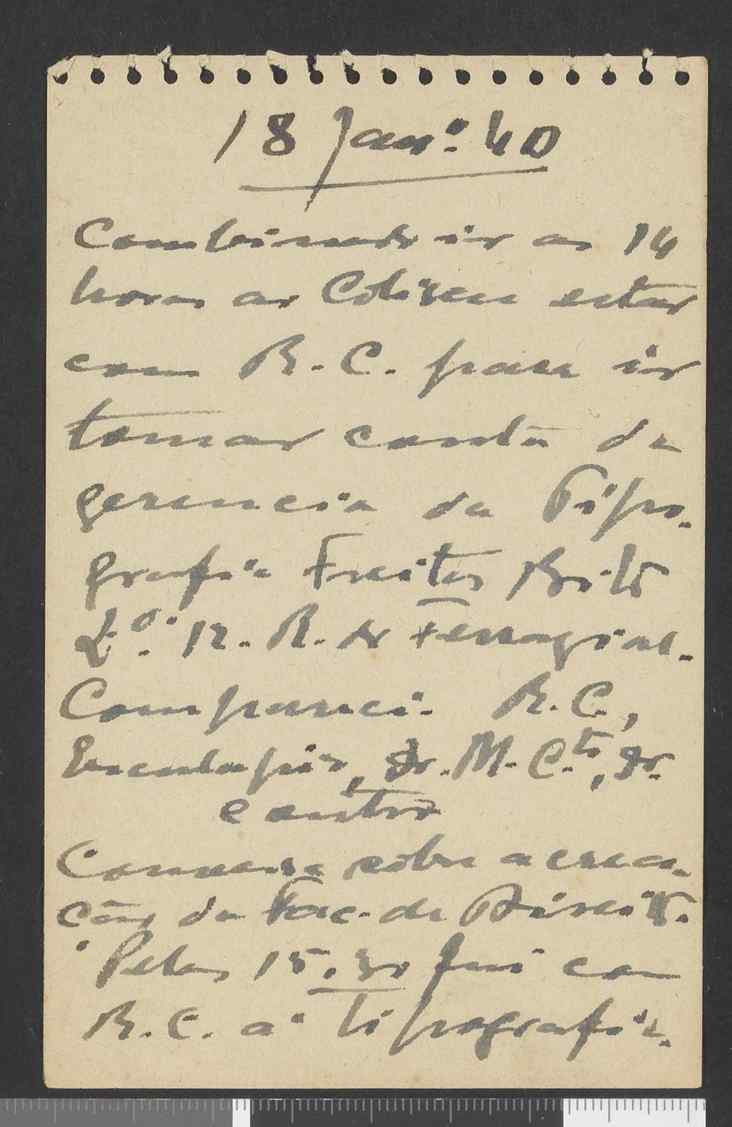 18 Janº. 40
Combinado ir as 14
horas ao Coliseu estar
com R. C. para ir
tomar conta da
gerencia da Tipo-
grafia Freitas Brito
L.º 12. R. do Ferragial.
Compareci. R. C.,
Esculapio, Dr. M. C.to, Dr.
e outro
Conversa sôbre a crea-
ção da Fac. de Direito.
Pelas 15.30 fui com
R. C. a' tipografia.